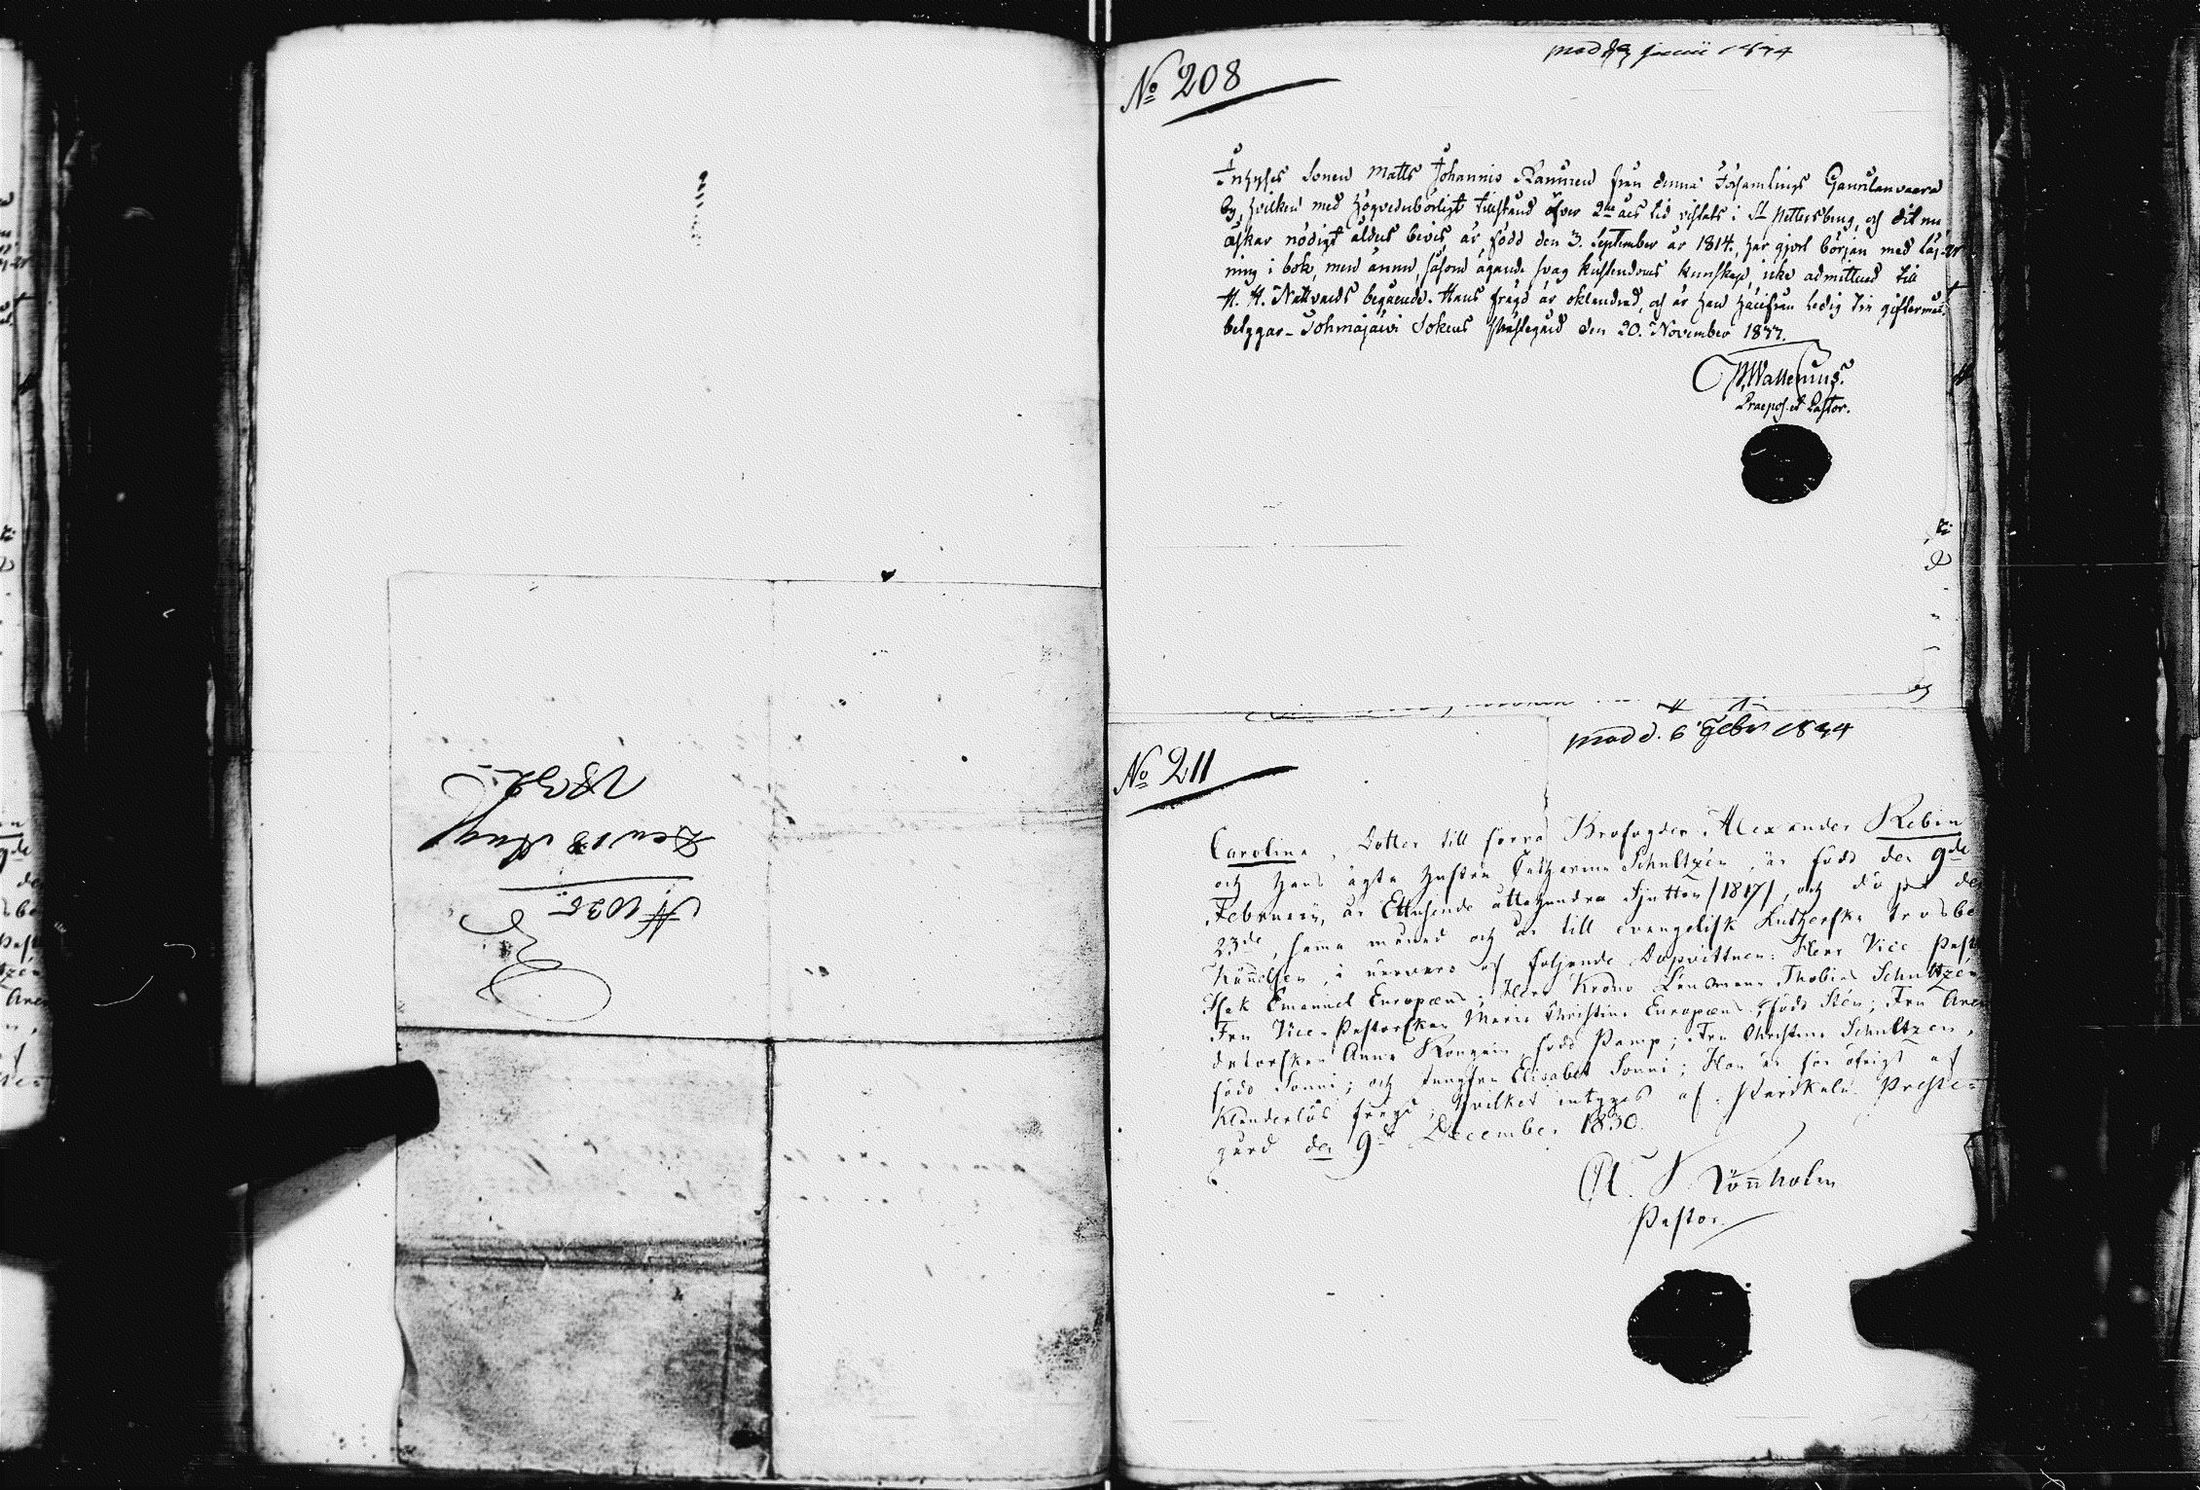 N 1035
Den 18 Aug
1832
No 208
Inhyses Sonen Matts Johannis Ranninen från denna Församlings
by, hvilken med högvederbörligt tillstånd öfver 2ne års tid vistats i St Pettersburg, och dit nu
äskar nödigt ålders bevis, är född den 3. September år 1814. har gjort början med läs-
ning i bok, men ännu, såsom ägande svag kristendoms kunskap, icke admitterad till
H. H. Nattvards begående. Hans frägd är oklandrad, och är han härifrån ledig till giftermåls
Tohmajärvi Sokens Prästegård den 20. November 1833.
Wallenius.
Praepos. et Pastor.
No 211
prod d. 6 Febr 1834
Carolina, Dotter till förra Alexander Rebin
och hans ägta hustru Catharina Schultzén, är född den 9de
Februarii, år Ettusende åttahundra Sjutton /1817/, och döpt den
23de, sama månad och är till evangelisk Lutherska trosbe
kännelsen, i närvaro af följande Dopvittnen: Herr Vice Past
Isak Emanuel Europæus; Herr Krono Länsmann Thobias Schultzén
Fru Vice-Pastorskan Maria Christina Europæus, född Stén; Fru Aren
datorskan Anna född Pamp; Fru Christina Schultzen,
född Sonni; och Jungfru Elisabet Sonni; Hon är för öfrigt af
Klanderlös frägd; hvilket intygas af. Parikala Preste-
gård den 9de December 1830.
A. J. Rönnholm
Pastor